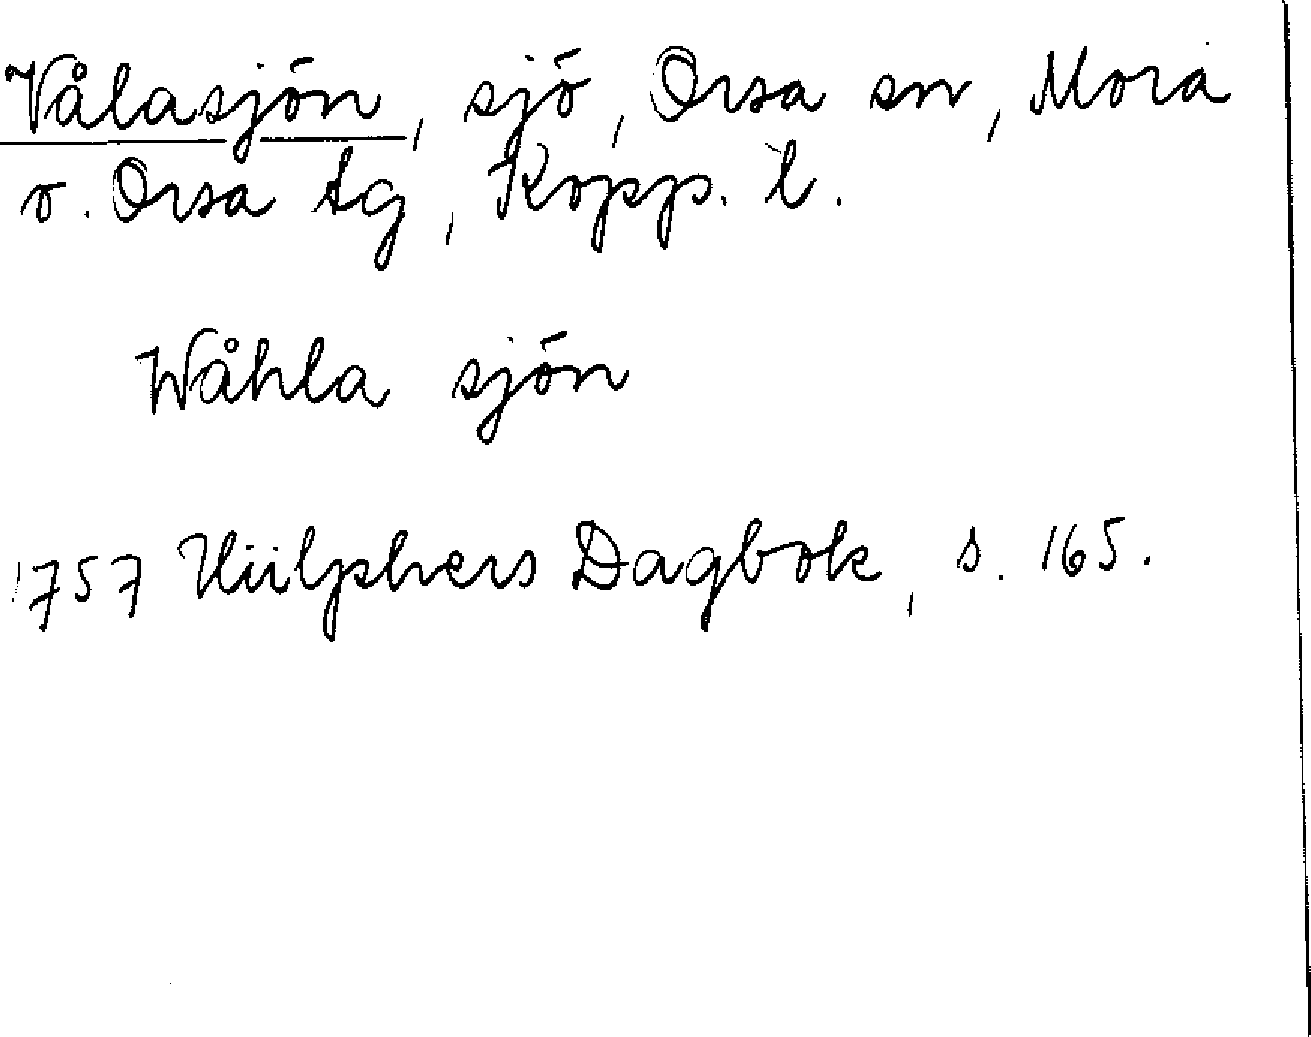 Vålasjön, sjö, Orsa sn, Mora
o. Orsa tg, Kopp. l.
Wåhla sjön
1757 Hülphers Dagbok, s. 165.